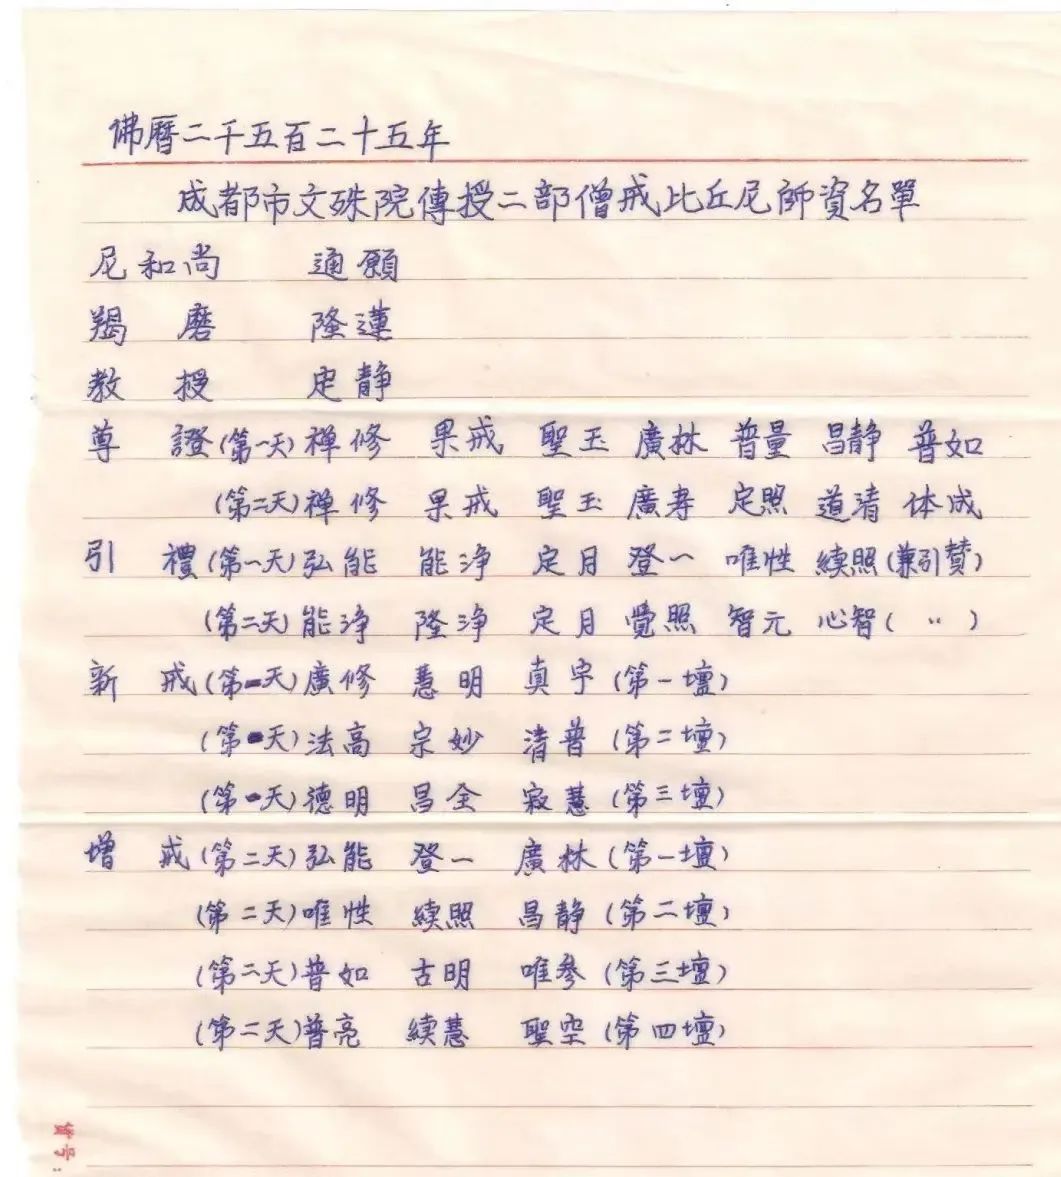 佛曆二千五百二十五年
成都市文殊院傳授二部僧戒比丘尼師資名單
尼和尚 通願
羯磨 隆蓮
教授 定靜
尊證(第一天)禅修 果戒 聖玉 廣林 普量 昌靜 普如
(第二天)禅修 果戒 聖玉 廣寿 定照 道清 体成
引禮(第一天)弘能 能浄 定月 登一 唯性 續照(兼引赞)
(第二天)能浄 隆浄 定月 覺照 智元 心智( 〃 )
新戒(第一天)廣修 慧明 真宇(第一壇)
(第一天)法高 宗妙 清普(第二壇)
(第一天)德明 昌全 寂慧(第三壇)
增戒(第二天)弘能 登一 廣林(第一壇)
(第二天)唯性 續照 昌靜(第二壇)
(第二天)普如 古明 唯參(第三壇)
(第二天)普亮 續慧 聖空(第四壇)